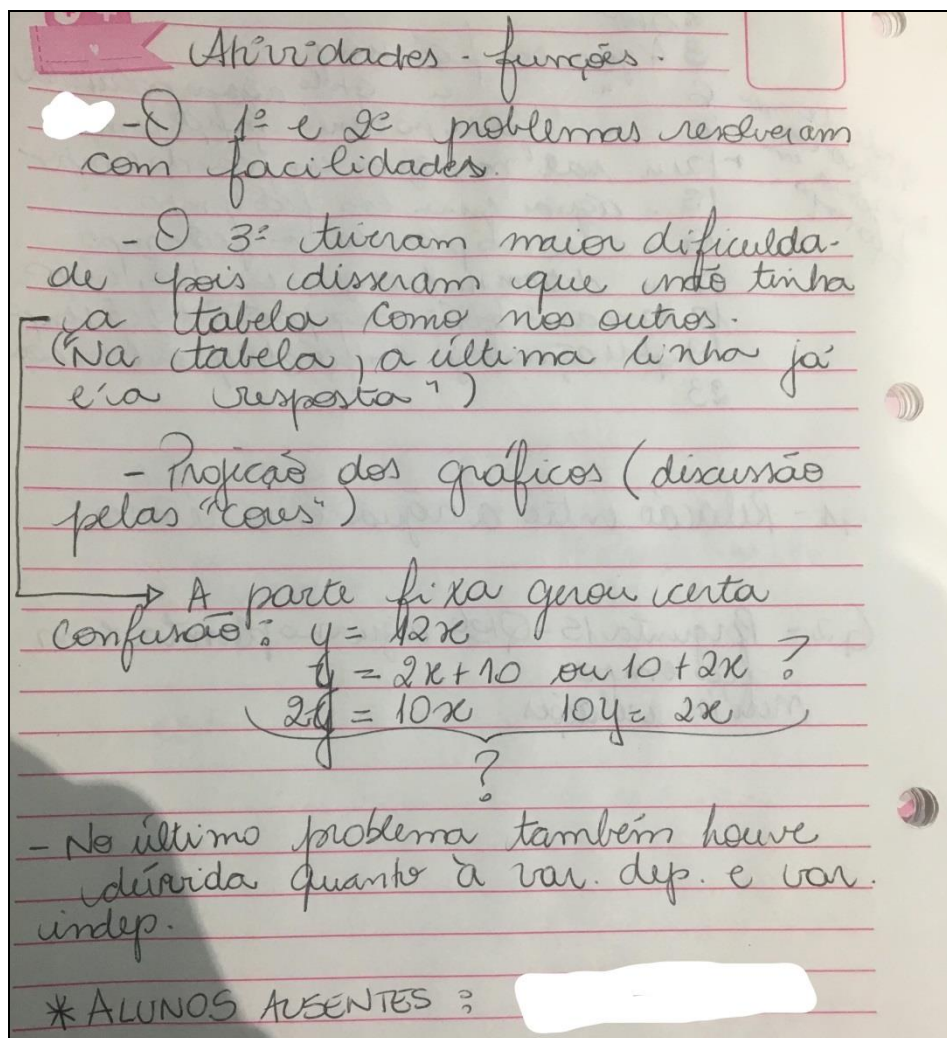 Atividades - funções.
- O 1º e 2º problemas resolveram
com facilidades.
- O 3º tiveram maior dificulda-
de pois disseram que não tinha
a tabela como nos outros.
(Na tabela, a última linha já
é a resposta")
- Projeção dos gráficos (discussão
pelas "cores")
A parte fixa gerou certa
confusão: y = 12x
y = 2x + 10 ou 10 + 2x ?
2y = 10x 10y = 2x
?
- No último problema também houve
dúvida quanto à var. dep. e var.
indep.
* ALUNOS AUSENTES :